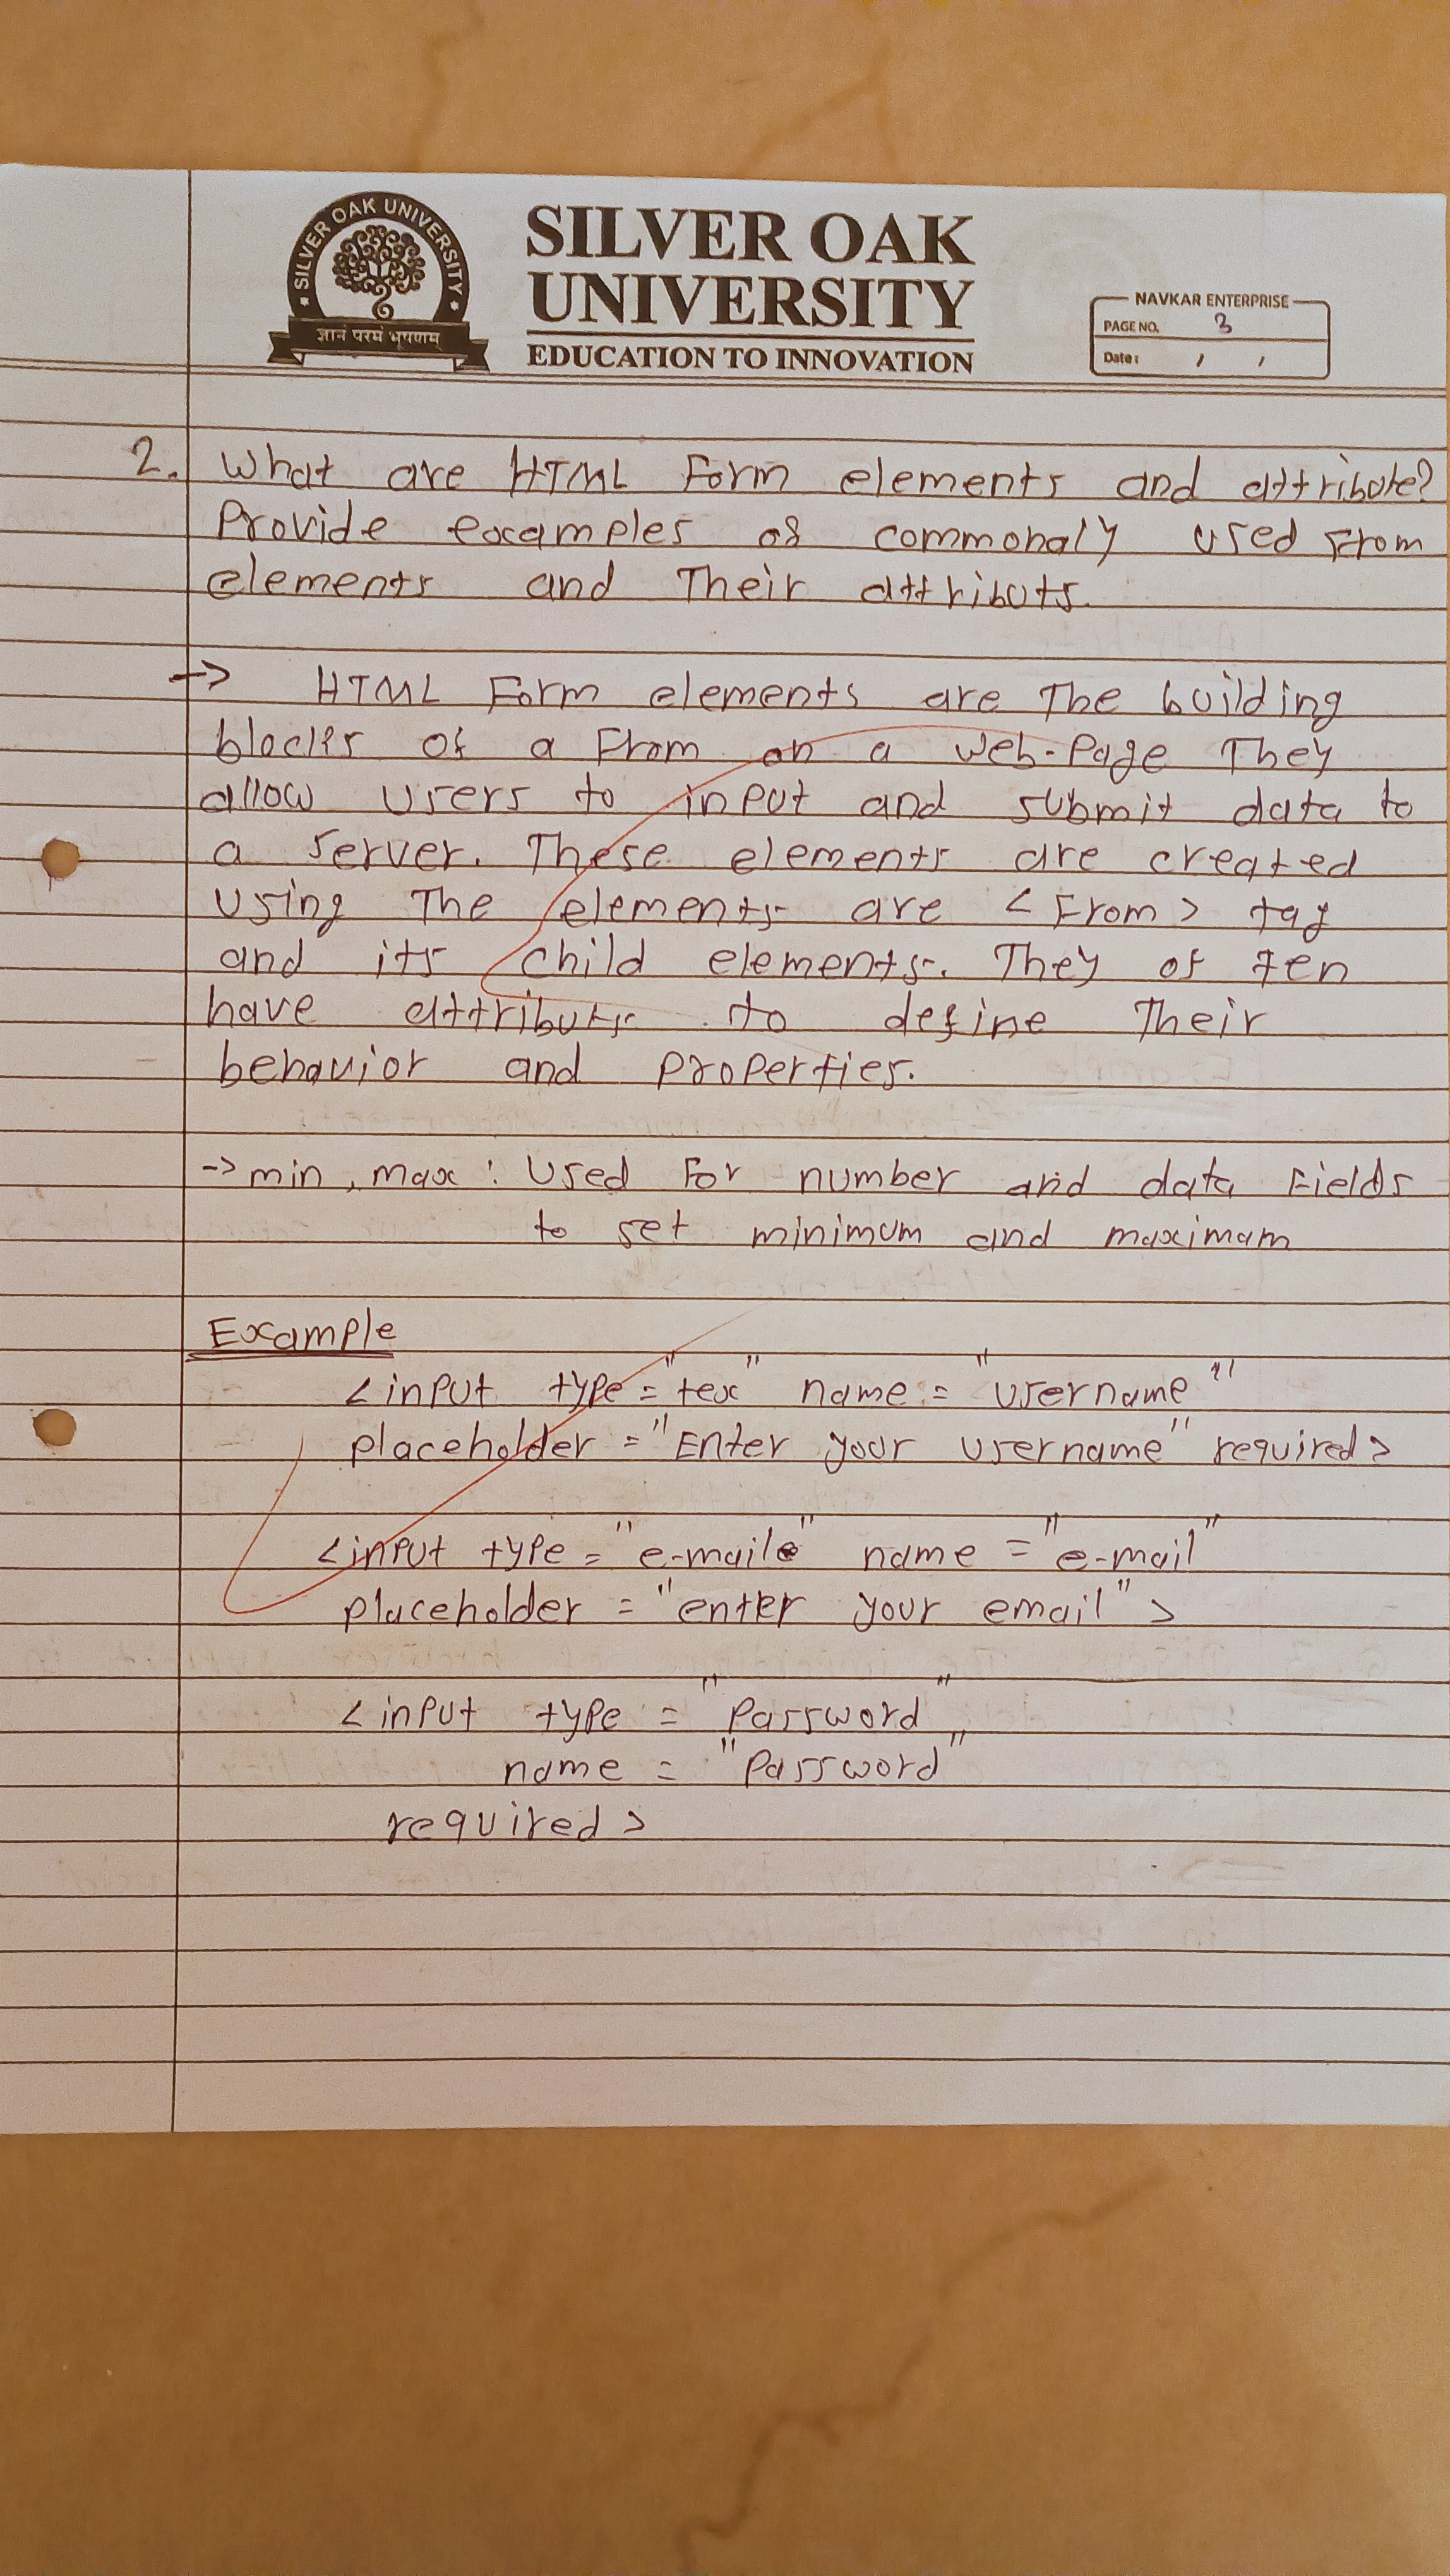 SILVER OAK UNIVERSITY
ज्ञानं परमं भूषणम्
SILVER OAK
UNIVERSITY
EDUCATION TO INNOVATION
NAVKAR ENTERPRISE
PAGE NO. 3
Date: / /
2. What are HTML Form elements and attribute?
Provide examples of commonaly used From
elements and Their attributs.
-> HTML Form elements are The building
blocks of a From on a web-page They
allow users to input and submit data to
a server. These elements are created
using The elements are <From> tag
and its child elements. They of ten
have attributs to define Their
behavior and properties.
-> min, max : Used For number and data Fields
to set minimum and maximam
Example
<input type="tex" name = "username"
placeholder = "Enter your username" required>
<input type = "e-maile" name = "e-mail"
placeholder = "enter your email">
<input type = "Password"
name = "Password"
required>